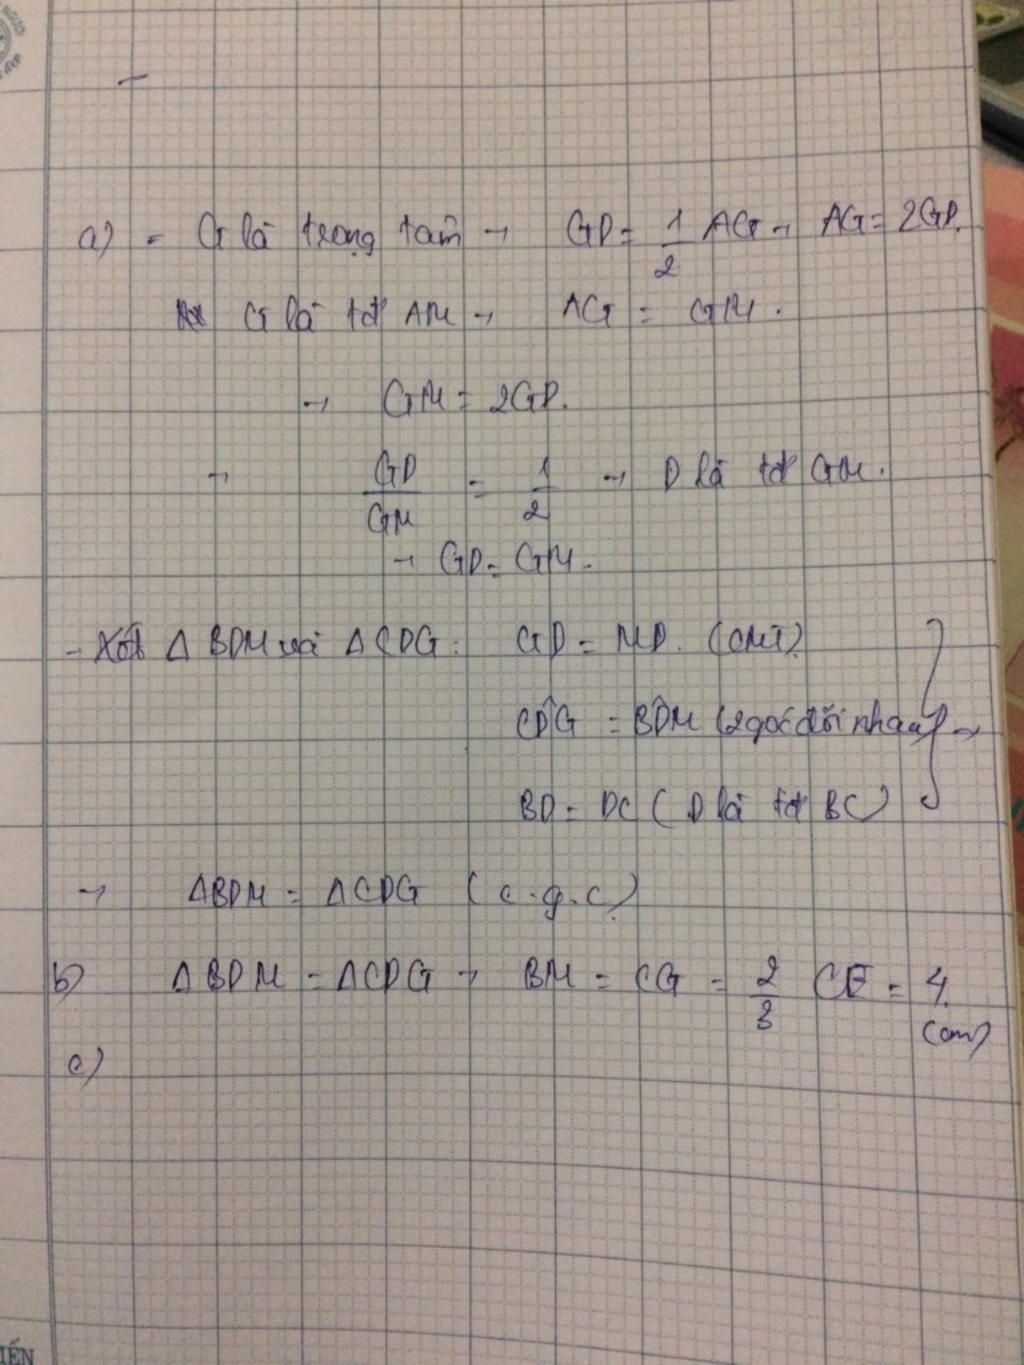 a) - G là trọng tâm → GD = 1/2 AG → AG = 2GD.
G là tđ AM → AG = GM.
→ GM = 2GD.
→ GD/GM = 1/2 → D là tđ GM.
→ GD = GM.
- Xét Δ BDM và Δ CDG: GD = MD. (CMT)
CD̂G = BD̂M (2 góc đối nhau) →
BD = DC (D là tđ BC)
→ ΔBDM = ΔCDG (c.g.c)
b) ΔBDM = ΔCDG → BM = CG = 2/3 CE = 4.
(cm)
c)
IẾN